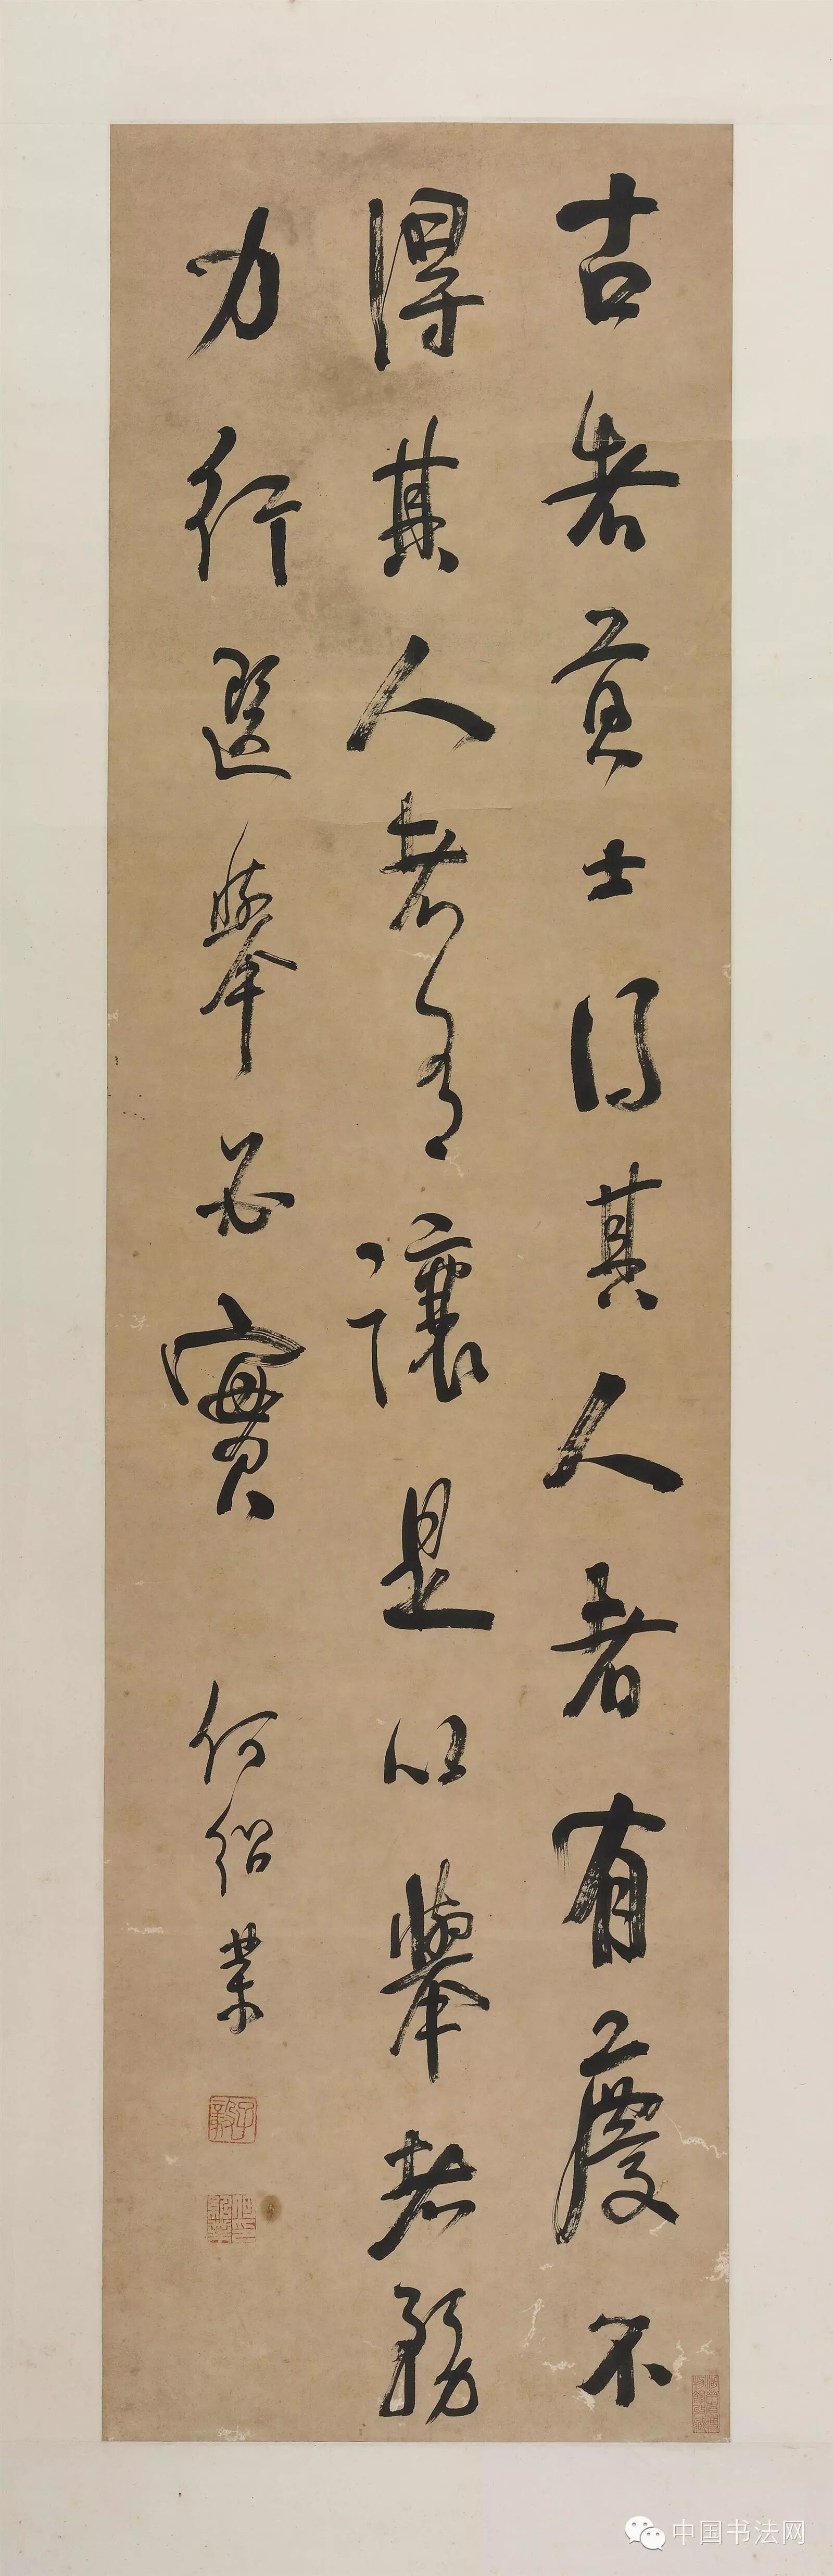 古者貢士得其人者有慶不
得其人者有讓是以舉者務
力行選舉必實
何紹業
子毅
何紹業
中国书法网